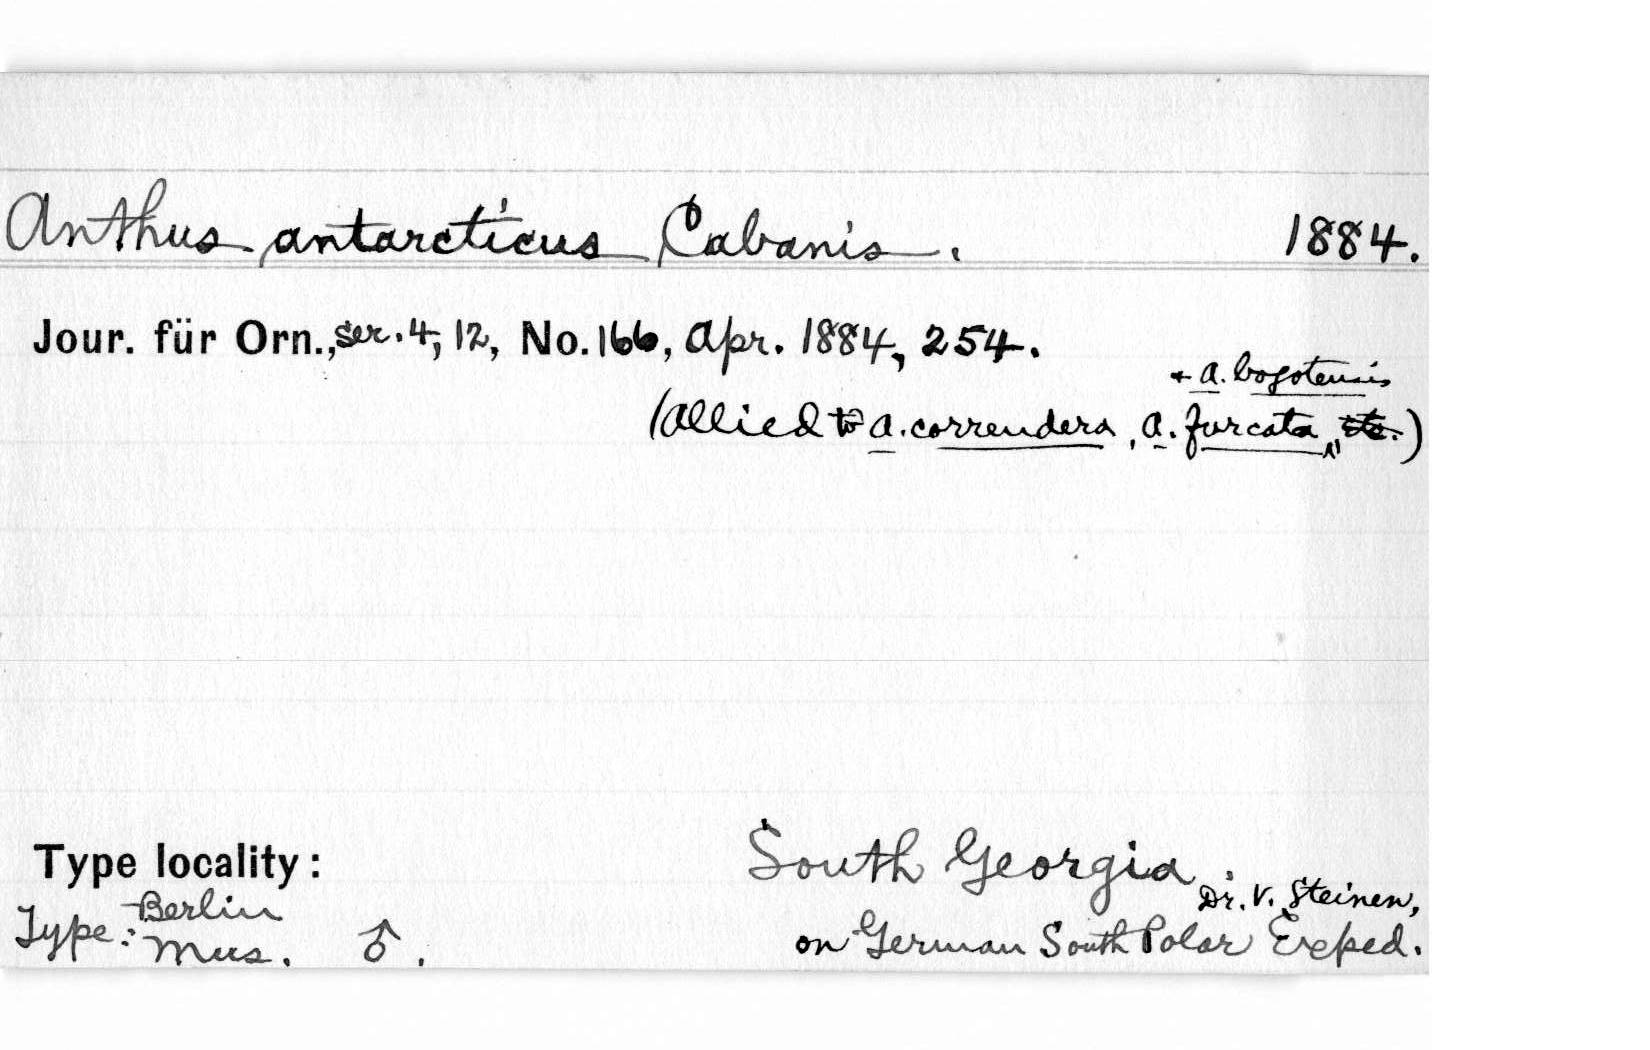 Anthus antarcticus Cabanis. 1884.
Jour. für Orn., ser. 4, 12, No. 166, Apr. 1884, 254.
+ A. bogotensis
(Allied to A. correndera, A. furcata, etc.)
Type locality: South Georgia,
Dr. V. Steinen,
Type: Berlin
Mus. ♂. on German South Polar Exped.